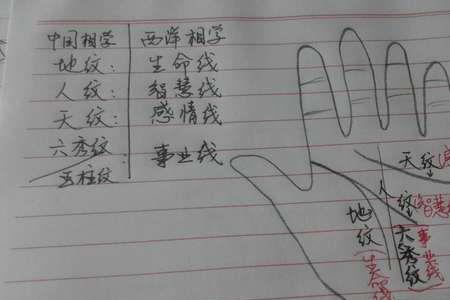 中国相学 西洋相学
地纹： 生命线
人纹： 智慧线
天纹： 感情线
六秀纹 事业线
玉柱纹
天纹
人纹 智慧
地纹
六秀纹 事业线